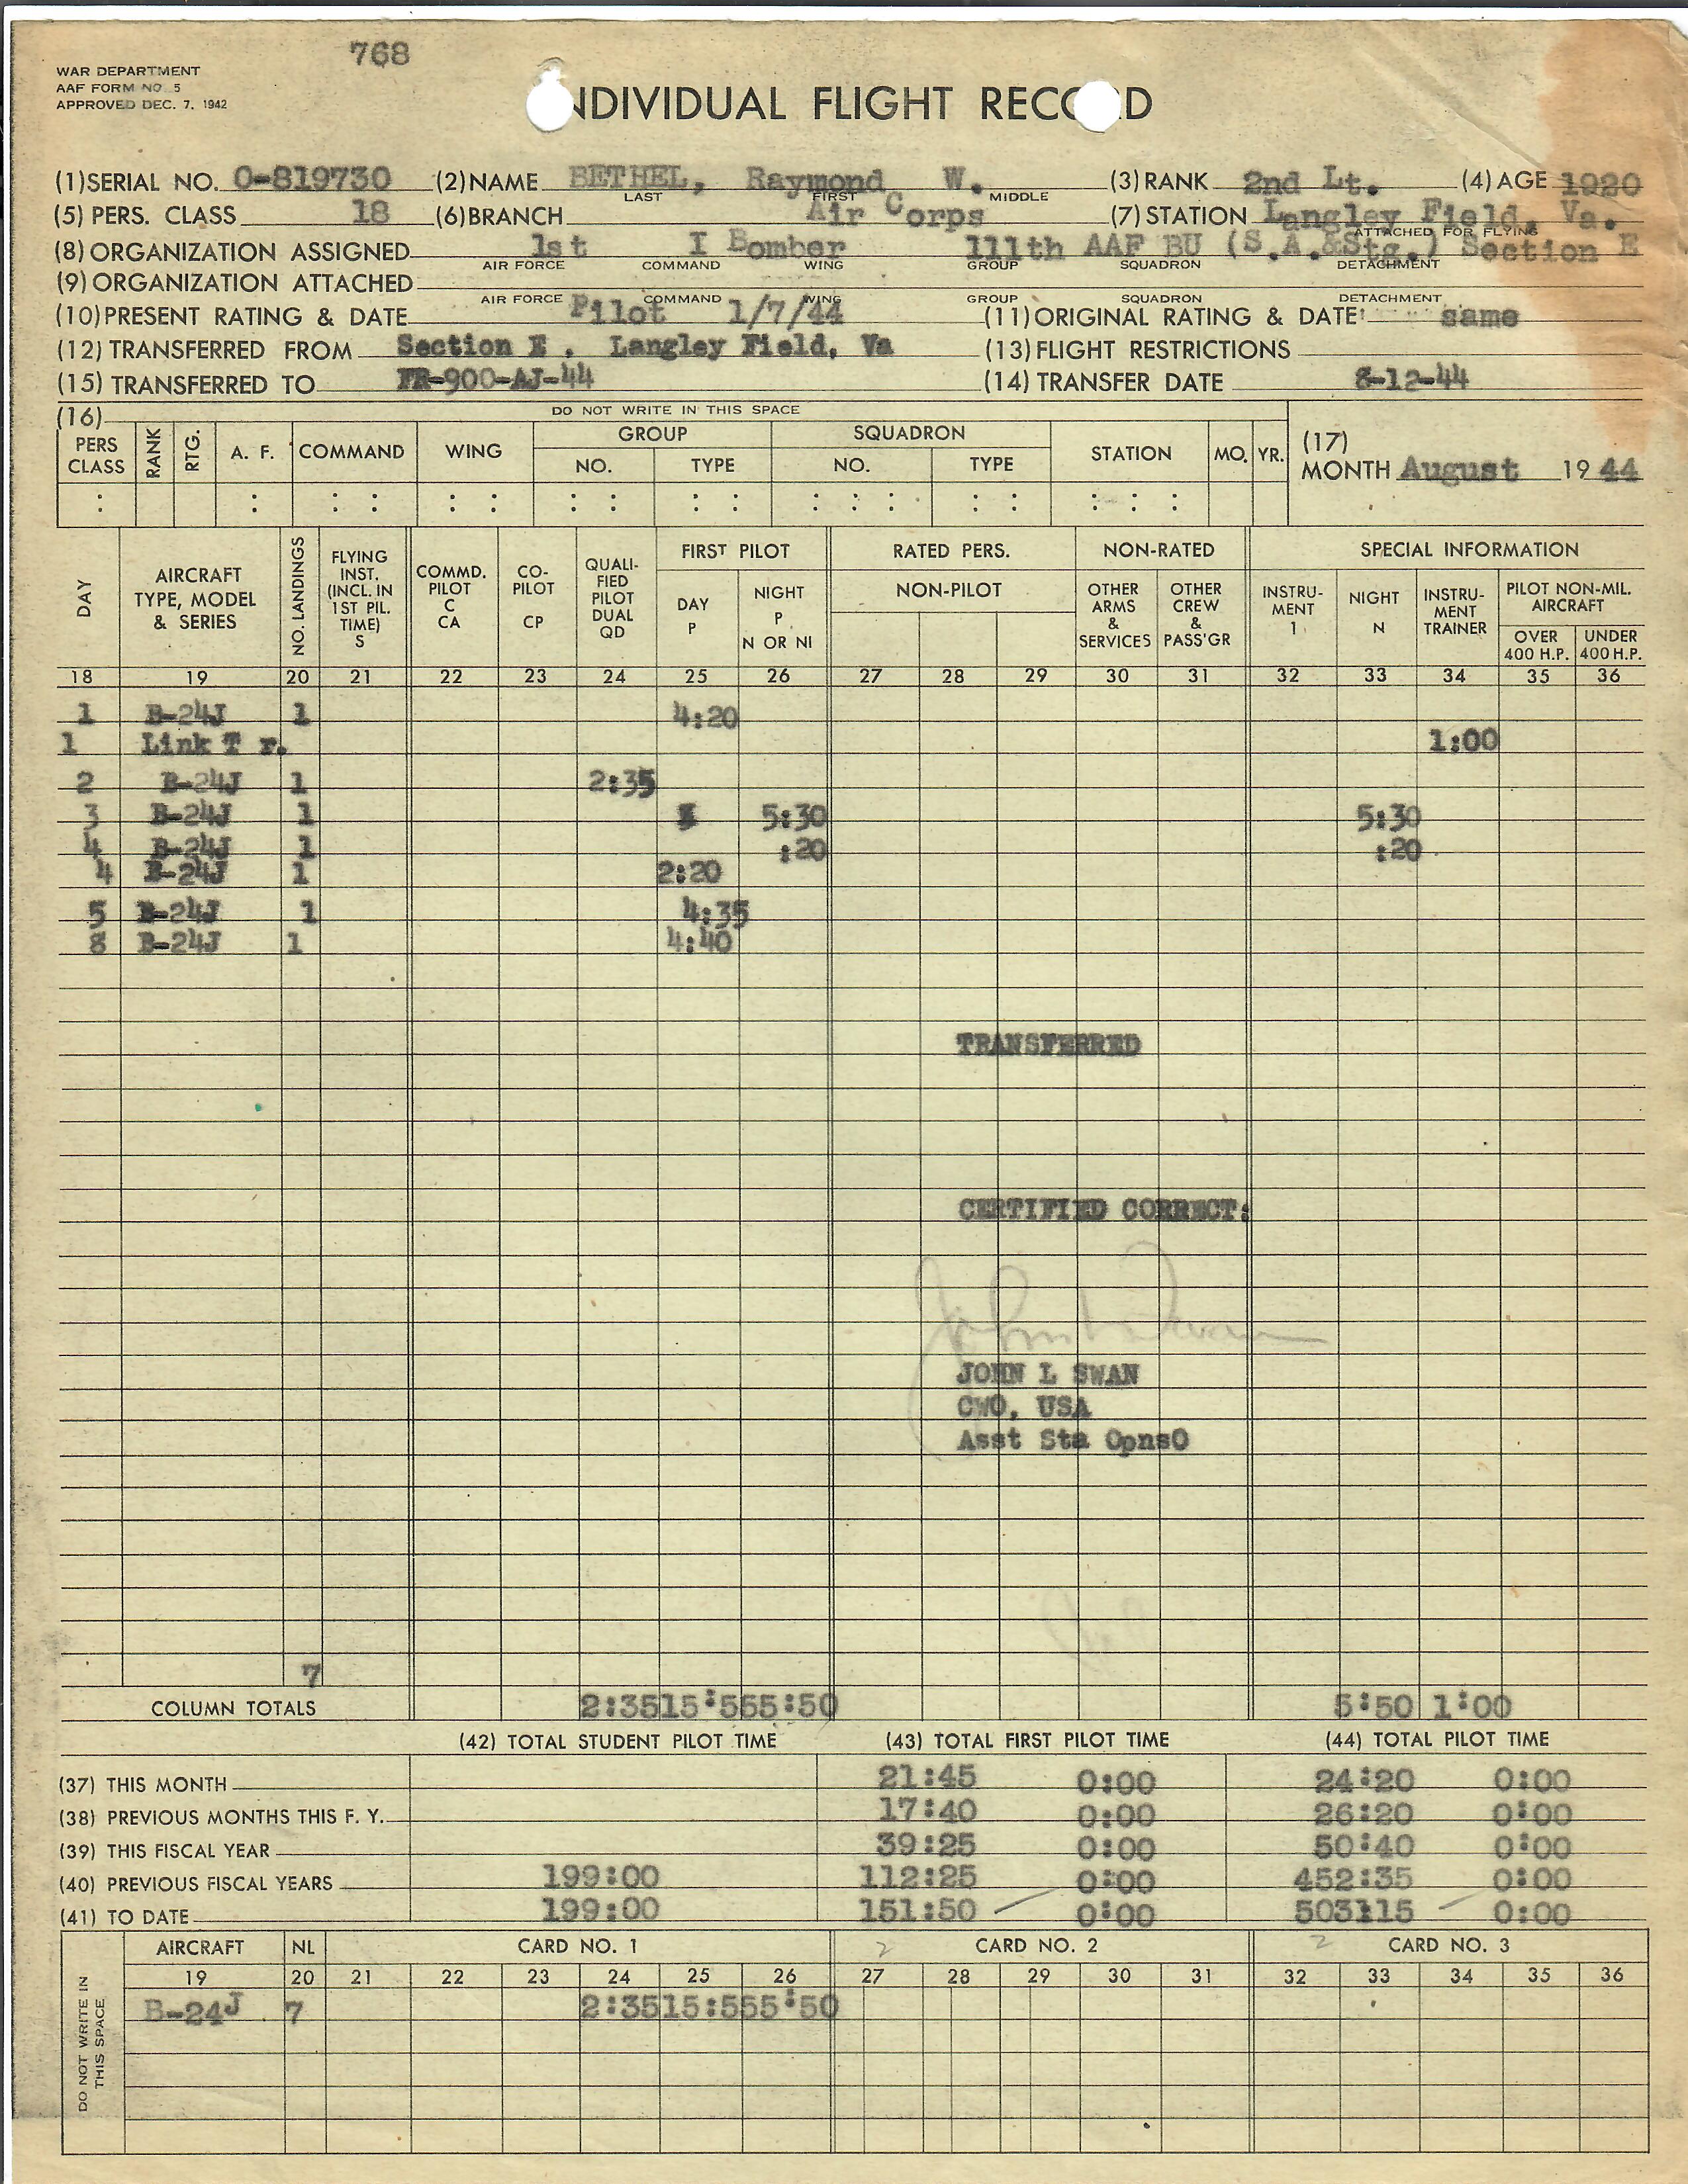 768
WAR DEPARTMENT
AAF FORM NO. 5
APPROVED DEC. 7, 1942
NDIVIDUAL FLIGHT REC D
(1) SERIAL NO. O-819730 (2) NAME BETHEL, Raymond W. (3) RANK 2nd Lt. (4) AGE 1920
LAST FIRST MIDDLE
(5) PERS. CLASS 18 (6) BRANCH Air Corps (7) STATION Langley Field, Va.
ATTACHED FOR FLYING
(8) ORGANIZATION ASSIGNED 1st I Bomber 111th AAF BU (S.A.&Stg.) Section E
AIR FORCE COMMAND WING GROUP SQUADRON DETACHMENT
(9) ORGANIZATION ATTACHED
AIR FORCE COMMAND WING GROUP SQUADRON DETACHMENT
(10) PRESENT RATING & DATE Pilot 1/7/44 (11) ORIGINAL RATING & DATE same
(12) TRANSFERRED FROM Section E, Langley Field, Va (13) FLIGHT RESTRICTIONS
(15) TRANSFERRED TO FR-900-AJ-44 (14) TRANSFER DATE 8-12-44
(16) DO NOT WRITE IN THIS SPACE
PERS CLASS RANK RTG. A. F. COMMAND WING GROUP NO. TYPE SQUADRON NO. TYPE STATION MO. YR.
(17) MONTH August 1944
DAY AIRCRAFT TYPE, MODEL & SERIES NO. LANDINGS FLYING INST. (INCL. IN 1ST PIL. TIME) S COMMD. PILOT C CA CO-PILOT CP QUALI-FIED PILOT DUAL QD FIRST PILOT DAY P NIGHT P N OR NI RATED PERS. NON-PILOT NON-RATED OTHER ARMS & SERVICES OTHER CREW & PASS'GR SPECIAL INFORMATION INSTRU-MENT 1 NIGHT N INSTRU-MENT TRAINER PILOT NON-MIL. AIRCRAFT OVER 400 H.P. UNDER 400 H.P.
18 19 20 21 22 23 24 25 26 27 28 29 30 31 32 33 34 35 36
1 B-24J 1 4:20
1 Link T r. 1:00
2 B-24J 1 2:35
3 B-24J 1 5:30 5:30
4 B-24J 1 :20 :20
4 B-24J 1 2:20
5 B-24J 1 4:35
8 B-24J 1 4:40
TRANSFERRED
CERTIFIED CORRECT:
John L Swan
JOHN L SWAN
CWO, USA
Asst Sta OpnsO
7
COLUMN TOTALS 2:3515:555:50 5:50 1:00
(42) TOTAL STUDENT PILOT TIME (43) TOTAL FIRST PILOT TIME (44) TOTAL PILOT TIME
(37) THIS MONTH 21:45 0:00 24:20 0:00
(38) PREVIOUS MONTHS THIS F. Y. 17:40 0:00 26:20 0:00
(39) THIS FISCAL YEAR 39:25 0:00 50:40 0:00
(40) PREVIOUS FISCAL YEARS 199:00 112:25 0:00 452:35 0:00
(41) TO DATE 199:00 151:50 0:00 503115 0:00
AIRCRAFT NL CARD NO. 1 2 CARD NO. 2 2 CARD NO. 3
19 20 21 22 23 24 25 26 27 28 29 30 31 32 33 34 35 36
DO NOT WRITE IN THIS SPACE
B-24J 7 2:3515:555:50